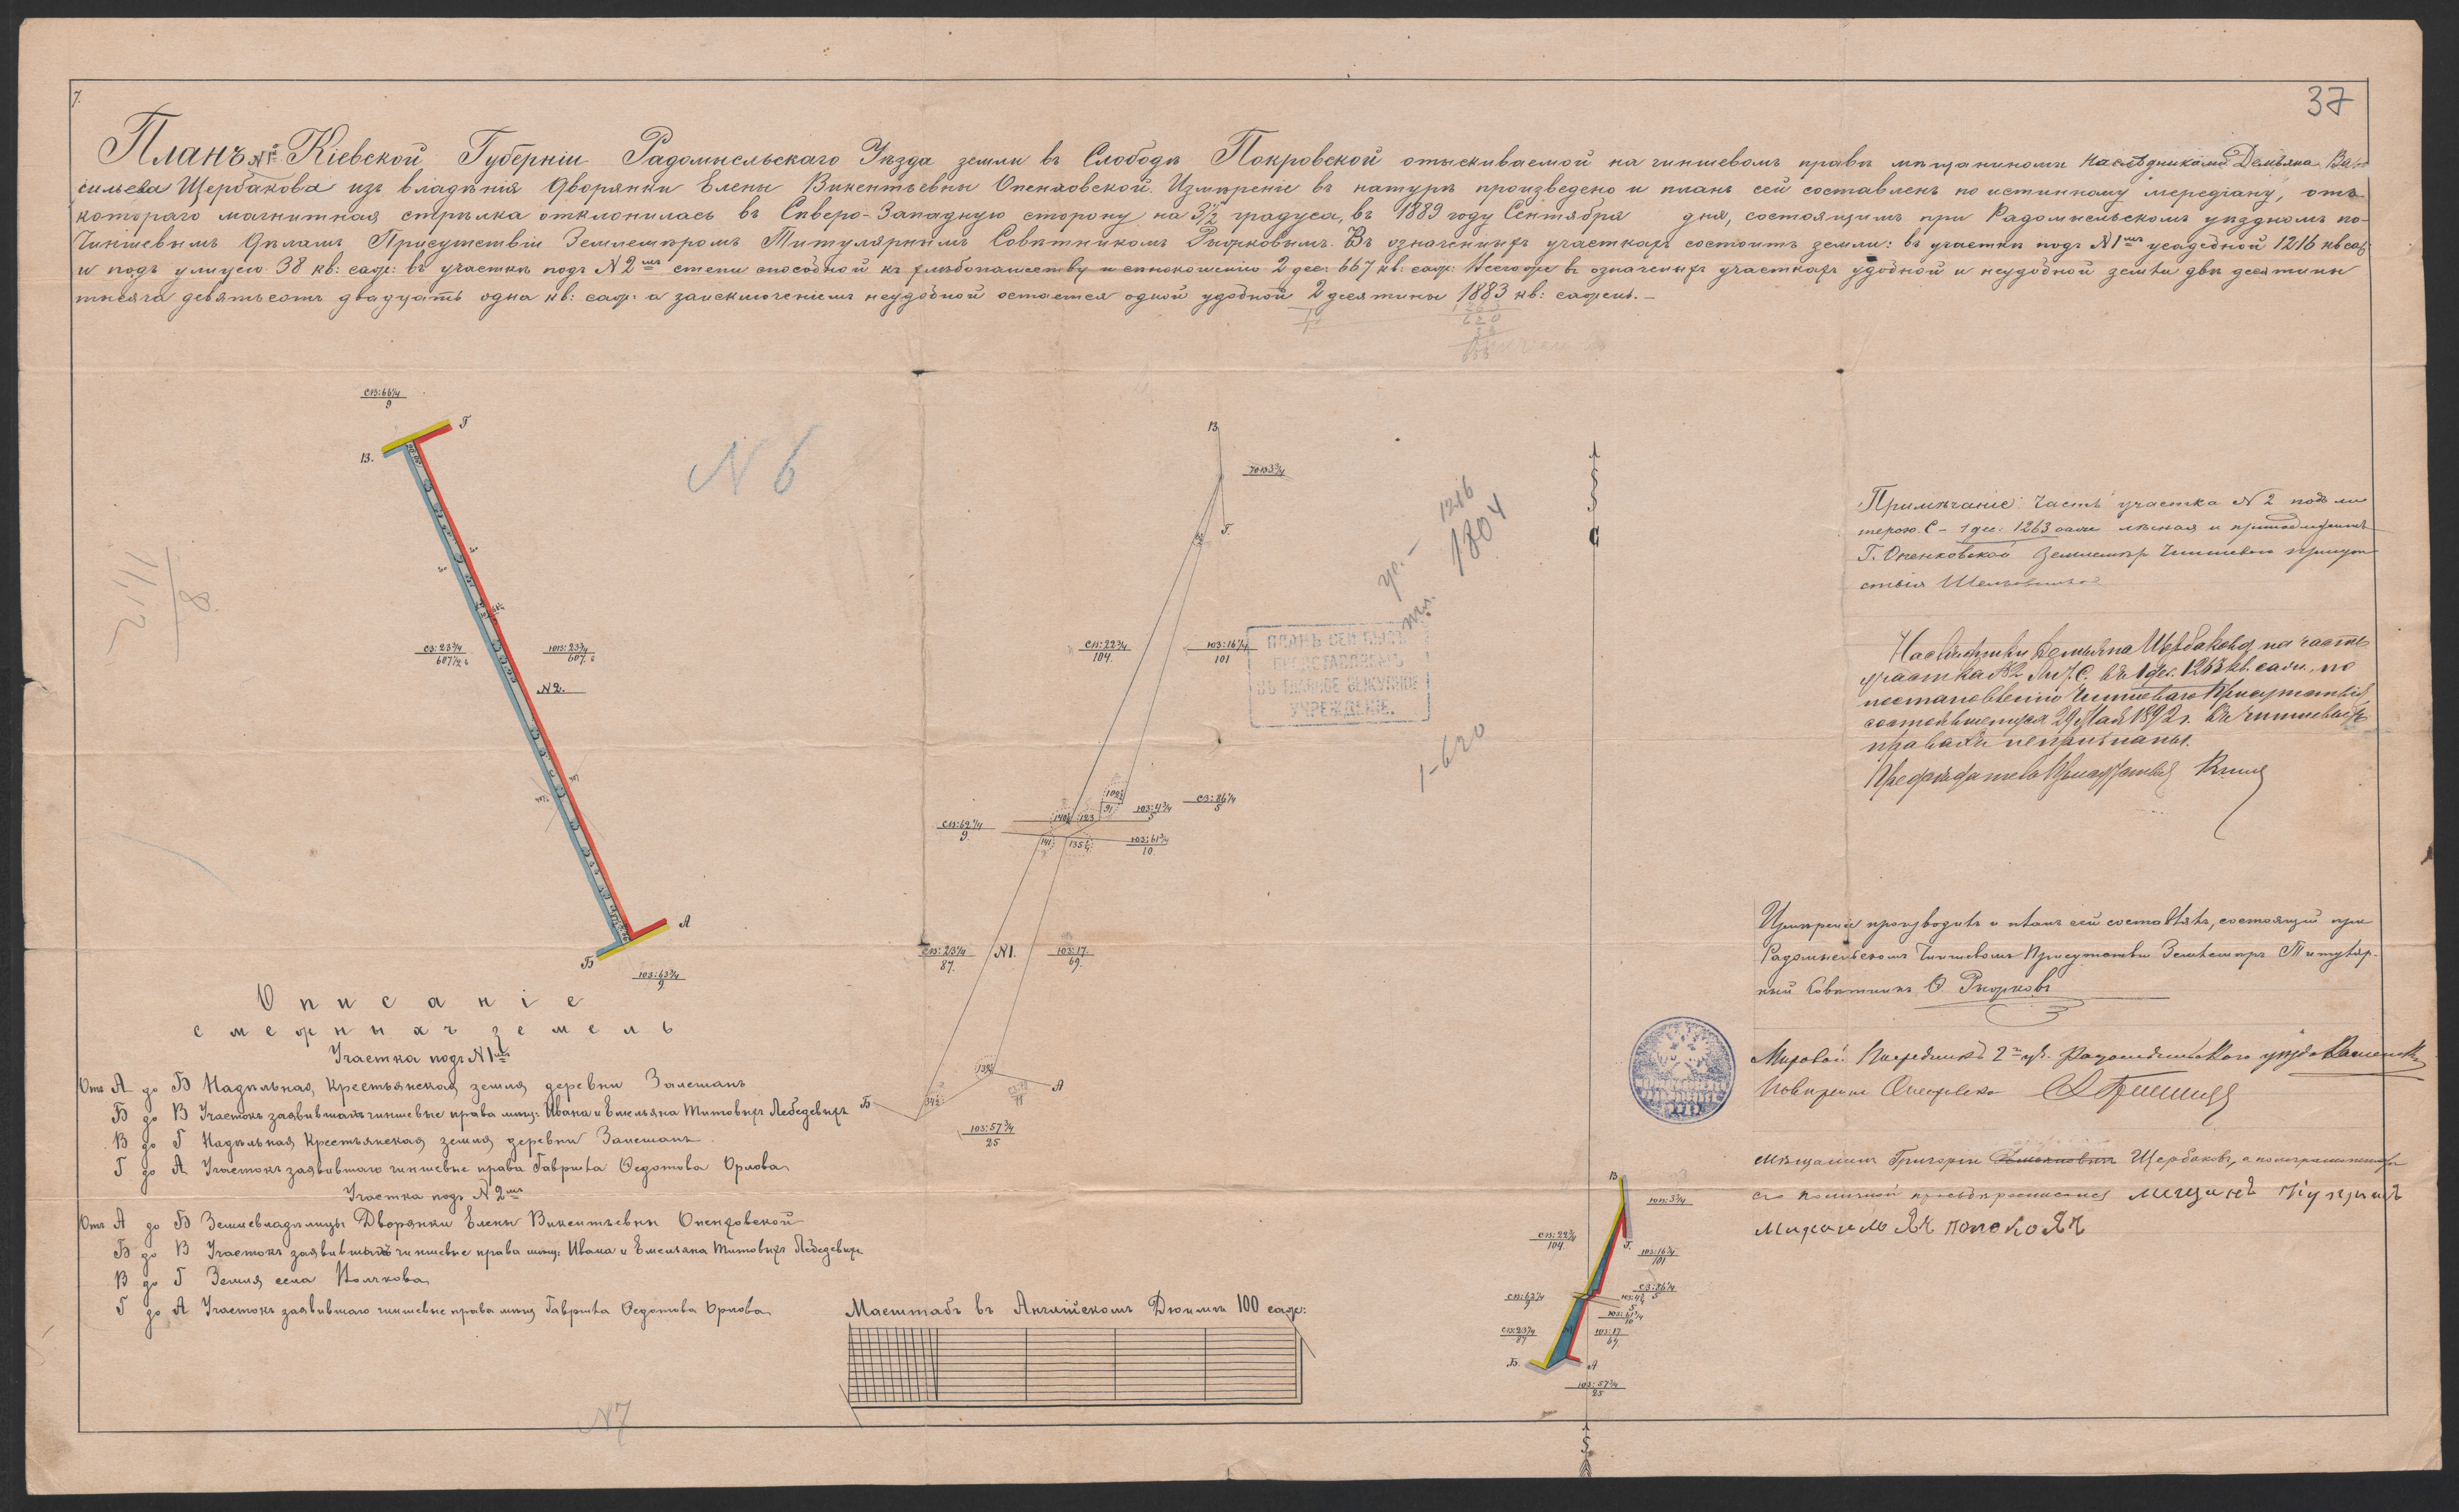 7.
37
Планъ № Кіевской Губерніи Радомысльскаго Уѣзда земли въ Слободѣ Покровской отыскиваемой на чиншевомъ правѣ мѣщаниномъ наслѣдниками Демьяна Ва-
сильева Щербакова изъ владѣнія Дворянки Елены Викентьевны Опенховской. Измѣреніе въ натурѣ произведено и планъ сей составленъ по истинному меридіану, отъ
котораго магнитная стрѣлка отклонилась въ Сѣверо-Западную сторону на 3½ градуса, въ 1889 году Сентября дня, состоящимъ при Радомысльскомъ уѣздномъ по-
Чиншевымъ Дѣламъ Присутствіи Землемѣромъ Титулярнымъ Совѣтникомъ Въ означенныхъ участкахъ состоитъ земли: въ участкѣ подъ №1мъ усадебной 1216 кв саж:
и подъ улицею 38 кв: саж: въ участкѣ подъ №2мъ степи способной къ хлѣбопашеству и сѣнокошенію 2 дес: 667 кв: саж: Всего же въ означенныхъ участкахъ удобной и неудобной земли двѣ десятины
тысяча девятьсотъ двадцать одна кв: саж: а заисключеніемъ неудобной остается одной удобной 2 десятины 1883 кв: сажень. —
СВ:66¼
9
Г
В.
N 6
СЗ:23¾
607½
ЮВ:23¾
607
№2.
А
Б
ЮЗ:63¾
9
В
ЮВ3¾
Г.
СВ:22¾
104.
ЮЗ:16¼
101
1216
1804
ус.
ПЛАНЪ СЕЙ БЫЛЪ
ПРЕДСТАВЛЕНЪ
ВЪ ГЛАВНОЕ ВЫКУПНОЕ
УЧРЕЖДЕНІЕ.
1-620
СЗ:86¼
5
ЮЗ:4¾
5
СВ:62¼
9.
ЮЗ:61¾
10.
СВ:23¼
87.
№1.
ЮЗ:17.
69.
А
Б
ЮЗ:57¾
25
С
Примѣчаніе: Часть участка №2 подъ ли
терою С – 1 дес. 1263 саж. лѣсная и принадлежитъ
Г. Опенховской Землемѣръ Чиншеваго Присут
ствія
Наслѣдники Демьяна Щербакова на часть
участка №2 лит. С. въ 1 дес. 1263 кв. саж. по
постановленію Чиншеваго Присутствія,
состоявшемуся 29 Мая 1892 г. въ чиншевыхъ
правахъ непризнаны.
Предсѣдатель Присутствія
Измѣреніе производилъ и планъ сей составлялъ, состоящій при
Радомысльскомъ Чиншевомъ Присутствіи Землемѣръ Титуляр-
ный Совѣтникъ
Мировой Посредникъ 2го уч. Радомысльскаго уѣзда
Повѣренный Опенховской
Мѣщанинъ Григорій Щербаковъ, а по неграмотности
его по личной просьбѣ росписался мещанинъ
Описаніе
смежныхъ земель
Участка подъ №1мъ
Отъ А до Б Надѣльная Крестьянская земля деревни Залешанъ
Б до В Участокъ заявившихъ чиншевые права мѣщ: Ивана и Емельяна Титовыхъ Лебедевыхъ
В до Г Надѣльная Крестьянская земля деревни Залешанъ.
Г до А Участокъ заявившаго чиншевые права Гавріила Федотова Орлова
Участка подъ №2мъ
Отъ А до Б Землевладѣлицы Дворянки Елены Викентьевны Опенховской
Б до В Участокъ заявившихъ чиншевые права мѣщ: Ивана и Емельяна Титовыхъ Лебедевыхъ
В до Г Земля села Волчкова
Г до А Участокъ заявившаго чиншевые права мѣщ Гавріила Федотова Орлова
Масштабъ въ Англійскомъ Дюймѣ 100 саж:
В
ЮВ:3¾
СВ:22¾
104.
Г.
ЮЗ:16¼
101
СЗ:86¼
5
СВ:62¼
9
ЮЗ:4¾
5
ЮЗ:61¾
10
СВ:23¼
87
ЮЗ:17
69
Б.
А
ЮЗ:57¾
25
N7